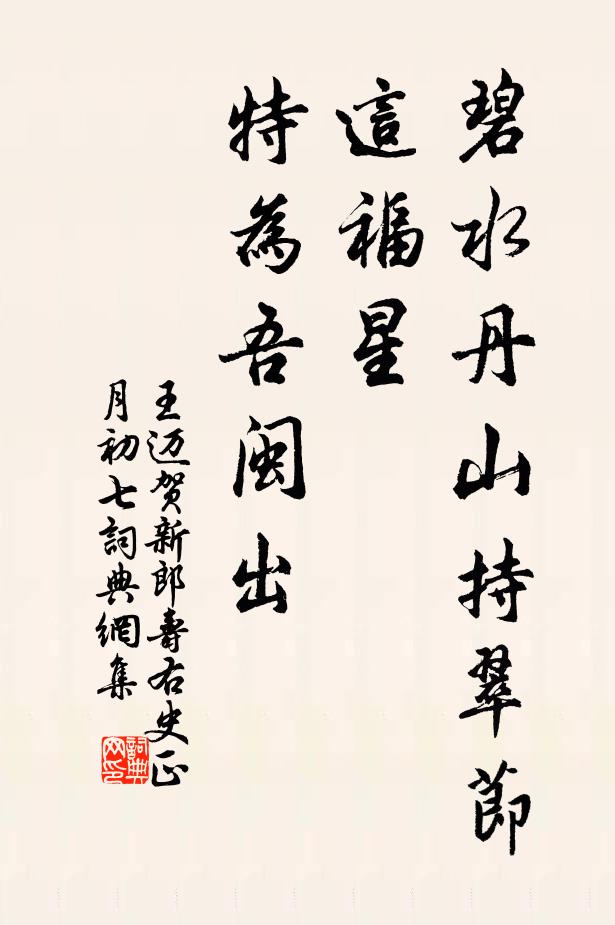 碧水丹山持翠節
這福星
特為吾閩出
王迈贺新郎壽右史正
月初七詞典網集
詞典網印